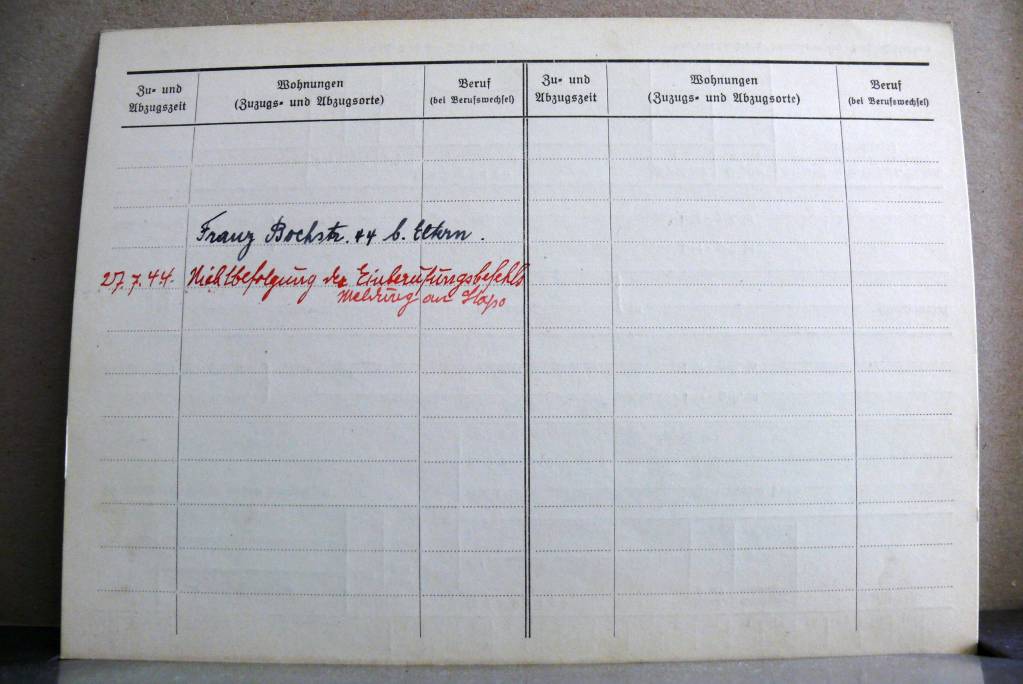 Zu- und Abzugszeit
Wohnungen
(Zuzugs- und Abzugsorte)
Beruf
(bei Berufswechsel)
Zu- und Abzugszeit
Wohnungen
(Zuzugs- und Abzugsorte)
Beruf
(bei Berufswechsel)
Franz Bochstr. 44 b. Eltern.
27.7.44. Nichtbefolgung des Einberufungsbefehls
Meldung an Stapo